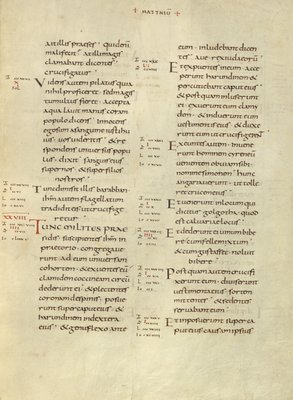 + MATTHEU +
ait illis praeses · quidenī
malifecit · at illi magis
clamabant dicentes
crucifigatur
Videns autem pilatus quia
nihil proficeret · sed magis
tumultus fieret · accepta
aqua lauit manus coram
populo dicens · Innocens
ego sum a sanguine iusti hu
ius · uos uideritis · & re
spondens uniuersus popu
lus · dixit · sanguis eius
super nos · & super filios
nostros ·
Tunc dimisit illis barabban ·
ihm autem flagellatum
tradidit eis ut crucifige
retur ·
XXVIII. TUNC MILITES PRAE
sidis suscipientes ihm in
praetorio · congregaue
runt ad eum uniuersam
cohortem · & exuentes eū
clamidem coccineam circū
dederunt ei · & plectentes
coronam despinis · posue
runt super caput eius · &
harundinem in dextera
eius · & genu flexo ante
eum · inludebant dicen
tes · aue rex iudaeorū ·
Et expuentes in eum · acce
perunt harundinem &
percutiebant caput eius
& postquam inluserunt
ei · exuerunt eum clami
dem · & induerunt eum
uestimentis eius · & duxe
runt eum ut crucifigerent
Exeuntes autem · inuene
runt hominem cyreneū
uenientem obuiam sibi ·
nomine simonem · hunc
angariauerunt · ut tolle
ret crucem eius ·
Et uenerunt in locum qui
dicitur golgotha · quod
est caluariae locus ·
Et dederunt ei uinum bibe
re cum felle mixtum ·
& cum gustasset · noluit
bibere ·
Postquam autem crucifi
xerunt eum · diuiserunt
uestimenta eius · sortem
mittentes · & sedentes
seruabant eum ·
Et imposuerunt super ca
put eius causam ipsius